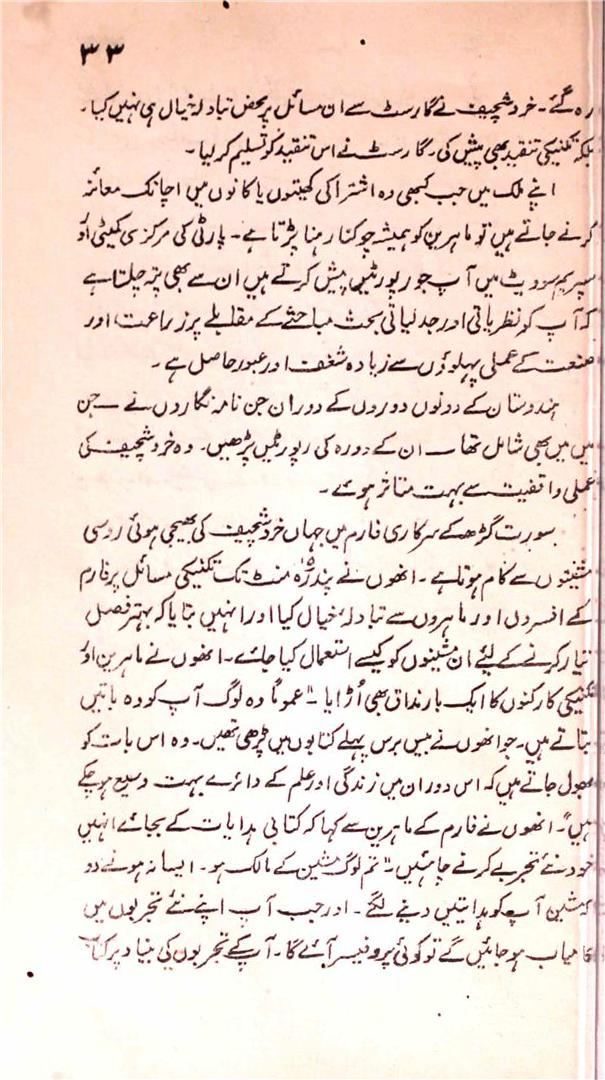 ۳۳
رہ گئے۔ خروشچیف نے گارسٹ سے ان مسائل پر محض تبادلۂ خیال ہی نہیں کیا۔
بلکہ تکنیکی تنقید بھی پیش کی۔ گارسٹ نے اس تنقید کو تسلیم کر لیا۔
اپنے ملک میں جب کبھی وہ اشتراکی کھیتوں یا کانوں میں اچانک معائنہ
کرنے جاتے ہیں تو ماہرین کو ہمیشہ چوکنا رہنا پڑتا ہے۔ پارٹی کی مرکزی کمیٹی اور
سپریم سوویٹ میں آپ جو رپورٹیں پیش کرتے ہیں ان سے بھی پتہ چلتا ہے
کہ آپ کو نظریاتی اور جدلیاتی بحث مباحثے کے مقابلے پر زراعت اور
صنعت کے عملی پہلوؤں سے زیادہ شغف اور عبور حاصل ہے۔
ہندوستان کے دونوں دوروں کے دوران جن نامہ نگاروں نے ــ جن
میں میں بھی شامل تھا ــ ان کے دورہ کی رپورٹیں پڑھیں۔ وہ خروشچیف کی
عملی واقفیت سے بہت متاثر ہوئے۔
سورت گڑھ کے سرکاری فارم میں جہاں خروشچیف کی بھیجی ہوئی روسی
مشینوں سے کام ہوتا ہے۔ انھوں نے پندرہ منٹ تک تکنیکی مسائل پر فارم
کے افسروں اور ماہروں سے تبادلۂ خیال کیا اور انہیں بتایا کہ بہتر فصل
تیار کرنے کے لئے ان مشینوں کو کیسے استعمال کیا جائے۔ انھوں نے ماہرین اور
تکنیکی کارکنوں کا ایک بار مذاق بھی اُڑایا۔ "عموماً وہ لوگ آپ کو وہ باتیں
بتاتے ہیں۔ جو انھوں نے بیس برس پہلے کتابوں میں پڑھی تھیں۔ وہ اس بات کو
بھول جاتے ہیں کہ اس دوران میں زندگی اور علم کے دائرے بہت وسیع ہو چکے
ہیں"۔ انھوں نے فارم کے ماہرین سے کہا کہ کتابی ہدایات کے بجائے انہیں
خود نئے تجربے کرنے چاہئیں۔ "تم لوگ مشین کے مالک ہو۔ ایسا نہ ہونے دو
کہ مشین آپ کو ہدایتیں دینے لگے۔ اور جب آپ اپنے نئے تجربوں میں
کامیاب ہو جائیں گے تو کوئی پروفیسر آئے گا۔ آپ کے تجربوں کی بنیاد پر کتاب